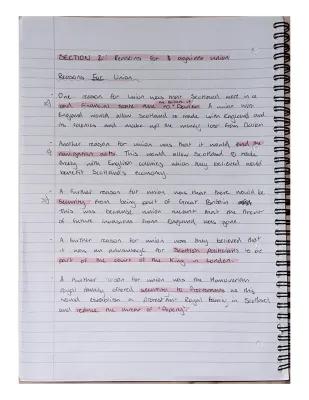 SECTION 2: Reasons for & against union
Reasons For Union
One reason for union was that Scotland were in a
bad financial state due to Darien. A union with
England would allow Scotland to trade with England and
its colonies and make up the money lost from Darien
Another reason for union was that it would end the
navigation acts. This would allow Scotland to trade
freely with English colonies which they believed would
benefit Scotland's economy.
A further reason for union was that there would be
security from being part of Great Britain
This was because union meant that the threat
of future invasions from England was gone.
A further reason for union was they believed that
it was an advantage for Scottish Politicians to be
part of the court of the King in London.
A further reason for union was the Hanoverian
royal family offered security to Protestants as this
would establish a Protestant Royal family in Scotland
and reduce the threat of "Popery".